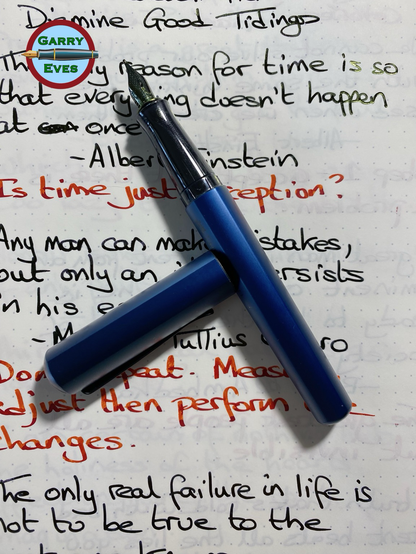 Diamine Good Tidings
GARRY
EVES
reason for time is so
that everything doesn't happen
at once
-Albert Einstein
Is time just perception?
Any man can make mistakes,
but only an persists
in his
- Tullius
adjust then perform
changes.
The only real failure in life is
not to be true to the